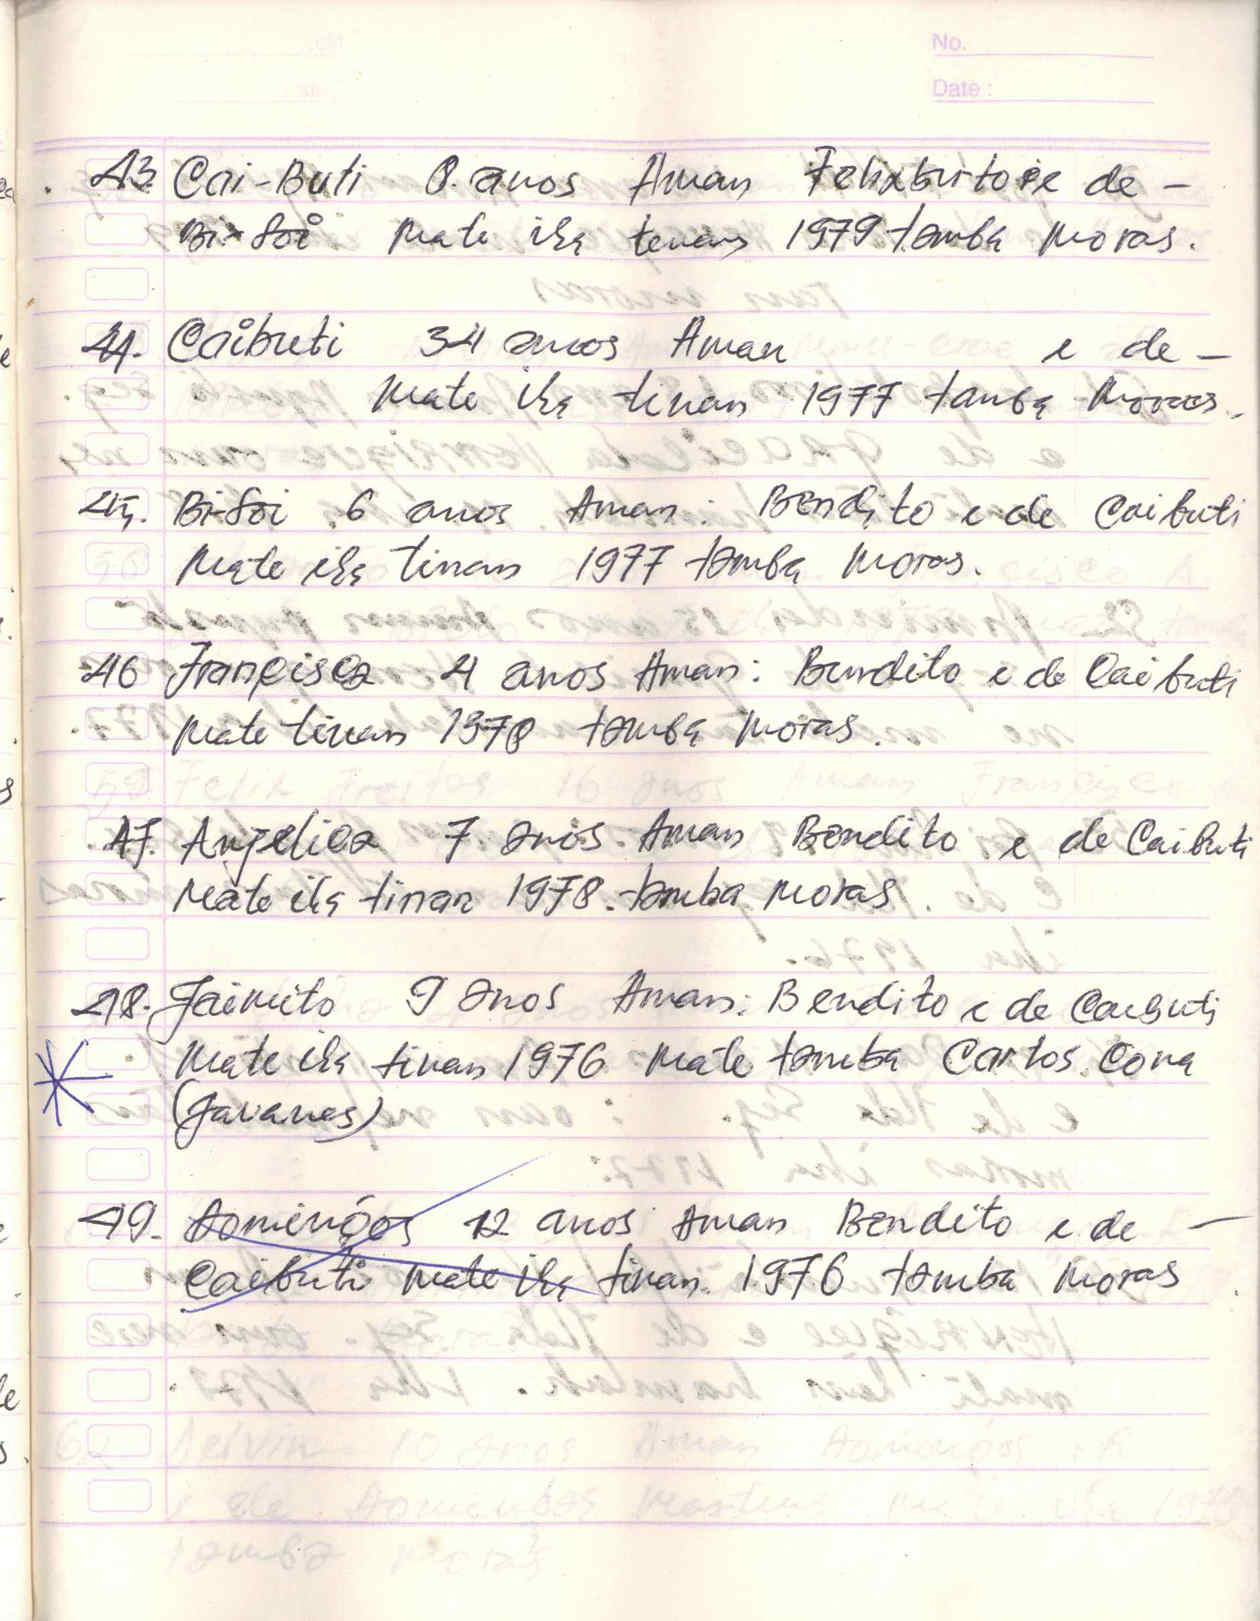 No.
Date :
43. Cai-Buti 8. anos Aman Felixburtoire de -
Bi-Soi Mate iha tenan 1979 tamba Moras.
44. Caibuti 34 anos Aman e de -
Mate iha tinan 1977 tamba Moras.
45. Bi-Soi 6 anos Aman: Bendito e de Caibuti
Mate iha tinan 1977 tamba Moras.
46 Francisca 4 anos Aman: Bendito e de Caibuti
Mate tinan 1978 tamba Moras.
47. Anjelica 7. anos. Aman Bendito e de Caibuti
Mate iha tinan 1978. tamba Moras.
48. Jaimito 9 anos Aman: Bendito e de Caibuti
Mate iha tinan 1976 Mate tamba Cartos Cona
(Javanes)
49. Domingos 12 anos Aman Bendito e de -
Caibuti Mate iha tinan. 1976 tamba Moras